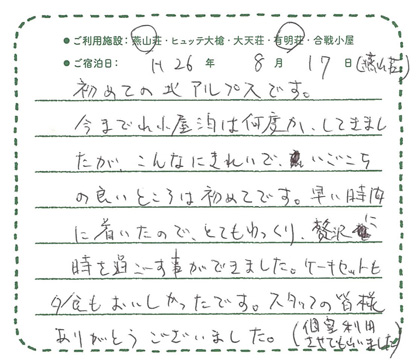 ●ご利用施設：燕山荘・ヒュッテ大槍・大天荘・有明荘・合戦小屋
●ご宿泊日：H26年 8月 17日(燕山荘)
初めての北アルプスです。
今まで山小屋泊は何度か、してきまし
たが、こんなにきれいで、いごこち
の良いところは初めてです。早い時間
に着いたので、とてもゆっくり、贅沢に
時を過ごす事ができました。ケーキセットも
夕食もおいしかったです。スタッフの皆様
ありがとうございました。(個室利用
させてもらいました)